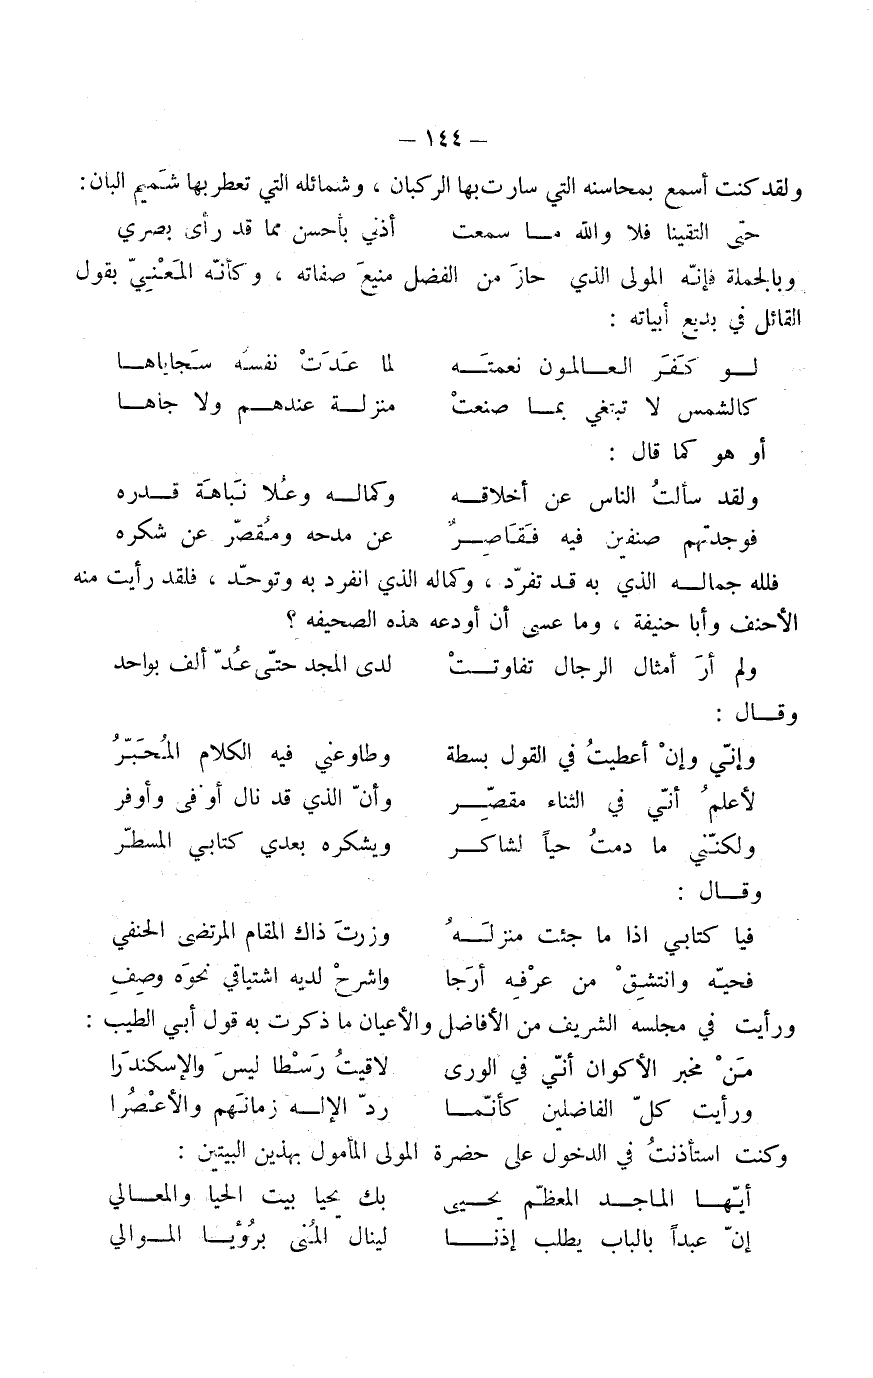 — ١٤٤ —
ولقد كنت أسمع بمحاسنه التي سارت بها الركبان ، وشمائله التي تعطر بها شَميم البان :
حتّى التقينا فلا والله مـا سمعت أذني بأحسن مما قد رأى بصري
وبالجملة فإنّه المولى الذي حازَ من الفضل منيعَ صفاته ، وكأنّه المَعْنيّ بقول
القائل في بديع أبياته :
لـو كَفَرَ العـالمون نعمتَـه لما عَدَتْ نفسُه سَجاياهـا
كالشمس لا تبتغي بمـا صنعتْ منزلـة عندهـم ولا جاهـا
أو هو كما قال :
ولقد سألتُ الناس عن أخلاقـه وكمالـه وعُلا نَباهَة قـدره
فوجدتّهم صنفين فيه فَقَاصِـرٌ عن مدحه ومُقصّر عن شكره
فلله جمالـه الذي به قـد تفرّد ، وكماله الذي انفرد به وتوحّد ، فلقد رأيت منه
الأحنف وأبا حنيفة ، وما عسى أن أودعه هذه الصحيفه ؟
ولم أرَ أمثال الرجال تفاوتـتْ لدى المجد حتّى عُدّ ألف بواحد
وقـال :
وإنّي وإنْ أعطيتُ في القول بسطة وطاوعني فيه الكلام المُحَبَّرُ
لأعلمُ أنّي في الثناء مقصّـر وأنّ الذي قد نال أوفى وأوفر
ولكنّني ما دمتُ حياً لشاكـر ويشكره بعدي كتابي المسطّر
وقـال :
فيا كتابي اذا ما جئت منزلَـهُ وزرتَ ذاك المقام المرتضى الحنفي
فحيّه وانتشِقْ من عرْفِه أرَجا واشرحْ لديه اشتياقي نحوَه وصِفِ
ورأيت في مجلسه الشريف من الأفاضل والأعيان ما ذكرت به قول أبي الطيب :
مَنْ مخبر الأكوان أنّي في الورى لاقيتُ رَسْطا ليسَ والإسكندَرا
ورأيت كلّ الفاضلين كأنّمـا ردّ الإلـه زمانَهم والأعْصُرا
وكنت استأذنتُ في الدخول على حضرة المولى المأمول بهذين البيتين :
أيّهـا الماجـد المعظّم يحـيى بك يحيا بيت الحيا والمعـالي
إنّ عبداً بالباب يطلب إذنـا لينال المُنى برُؤيـا المـوالي